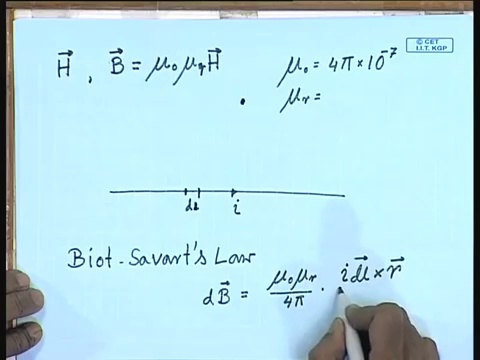 © CET
I.I.T. KGP
H⃗ , B⃗ = μ₀μᵣH⃗
μ₀ = 4π×10⁻⁷
μᵣ =
dl i
Biot-Savart's Law
dB⃗ = μ₀μᵣ/4π · i dl⃗ × r⃗